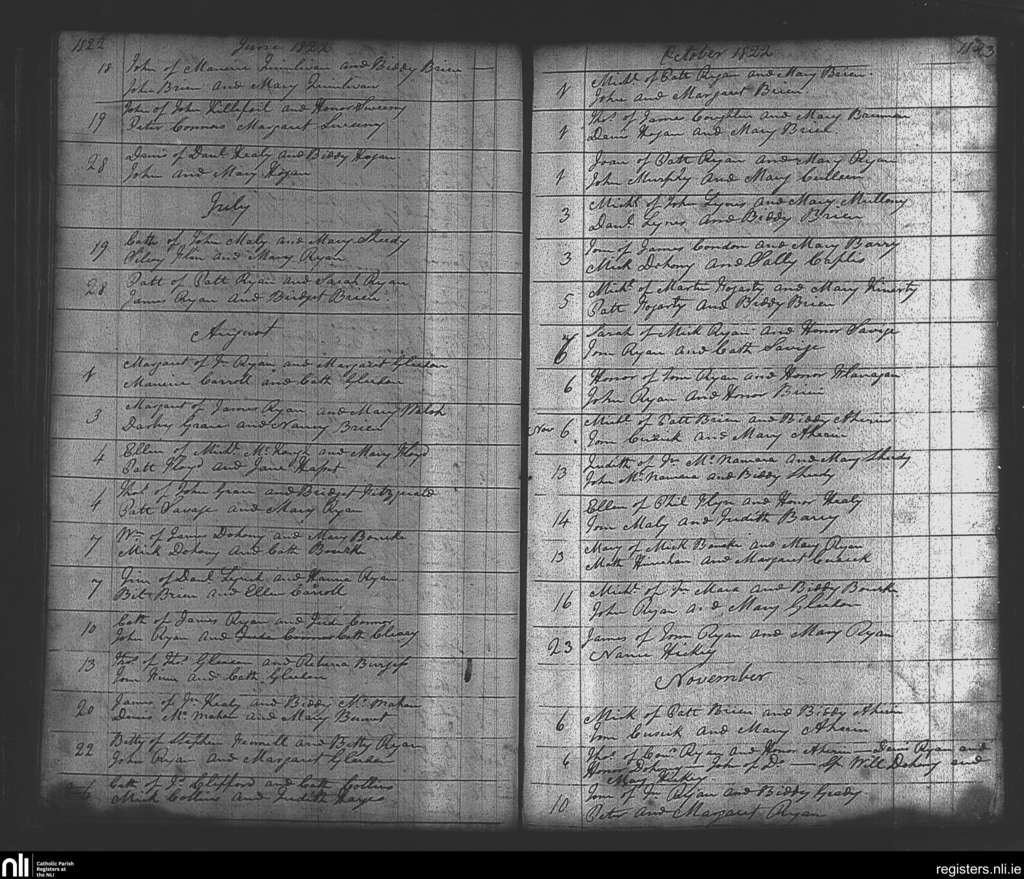 1822 June 1822
18 John of Maurice Quinlivan and Biddy Brien
John Brien and Mary Quinlivan
19 John of John Killfoil and Honor Sweeny
Peter Connors Margaret Sweeny
28 Denis of Danl. Healy and Biddy Hogan
John and Mary Hogan
July
19 Cath of John Maly and Mary Sheedy
and Mary Ryan
28 Patt of Patt Ryan and Sarah Ryan
James Ryan and Bridget Brien
August
1 Margaret of Jn Ryan and Margaret Gleeson
Maurice Carroll and Cath Gleeson
3 Margaret of James Ryan and Mary Walsh
Darby Grace and Nanny Brien
4 Ellen of Michl. McKeogh and Mary Floyd
Patt Floyd and Jane
4 Thos. of John Grace and Bridget Fitzgerald
Patt Savage and Mary Ryan
7 Wm of James Dohony and Mary Bourke
Mick Dohony and Cath Bourke
7 of Danl Lynch and Hanna Ryan
Bil Brien and Ellen Carroll
10 Cath of James Ryan and Connor
John Ryan and Connor Cath Cleary
13 Thos. of Thos. Gleeson and
and Cath Gleeson
20 James of Jn Healy and Biddy McMahon
Denis McMahon and Mary
22 Betty of Stephen Fennell and Betty Ryan
John Ryan and Margaret Gleeson
Cath of Jn Clifford and Cath Collins
Mick Collins and Judith Hayes
October 1822
1 Michl. of Patt Ryan and Mary Brien
John and Margaret Brien
1 Thos. of James Coughlin and Mary Brennan
Danl Hogan and Mary Brien
1 Joan of Patt Ryan and Mary Ryan
John Murphy and Mary Culleen
3 Michl. of John Lyons and Mary Mullony
Danl. Lyons and Biddy Brien
3 Tom of James Condon and Mary Barry
Mick Dohony and Sally Caplis
5 Michl. of Martin Fogarty and Mary
Patt Fogarty and Biddy Brien
6 Sarah of Mick Ryan and Honor Savige
Tom Ryan and Cath Savige
6 Honor of Tom Ryan and Honor Flanagan
John Ryan and Honor Brien
Nov 6 Michl. of Patt Brien and Biddy Ahern
Tom Cusick and Mary Ahern
13 Judith of Jn McNamara and Mary Sheedy
John McNamara and Biddy Sheedy
14 Ellen of Phil Flyn and Honor Healy
Tom Maly and Judith Barry
13 Mary of Mick Bourke and Mary Ryan
Math and Margaret Cusick
16 Michl. of Jn Mara and Biddy Bourke
John Ryan and Mary Gleeson
23 James of Tom Ryan and Mary Ryan
Nance Hickey
November
6 Mick of Patt Brien and Biddy Ahern
Tom Cusick and Mary Ahern
6 Thos. of Ryan and Honor Ahern — Denis Ryan and
Honor Dohony — John of Do — Sp Will Dohony and
Mary Hickey
10 Tom of Jn Ryan and Biddy Grady
Peter and Margaret Ryan
nli Catholic Parish
Registers at
the NLI
registers.nli.ie